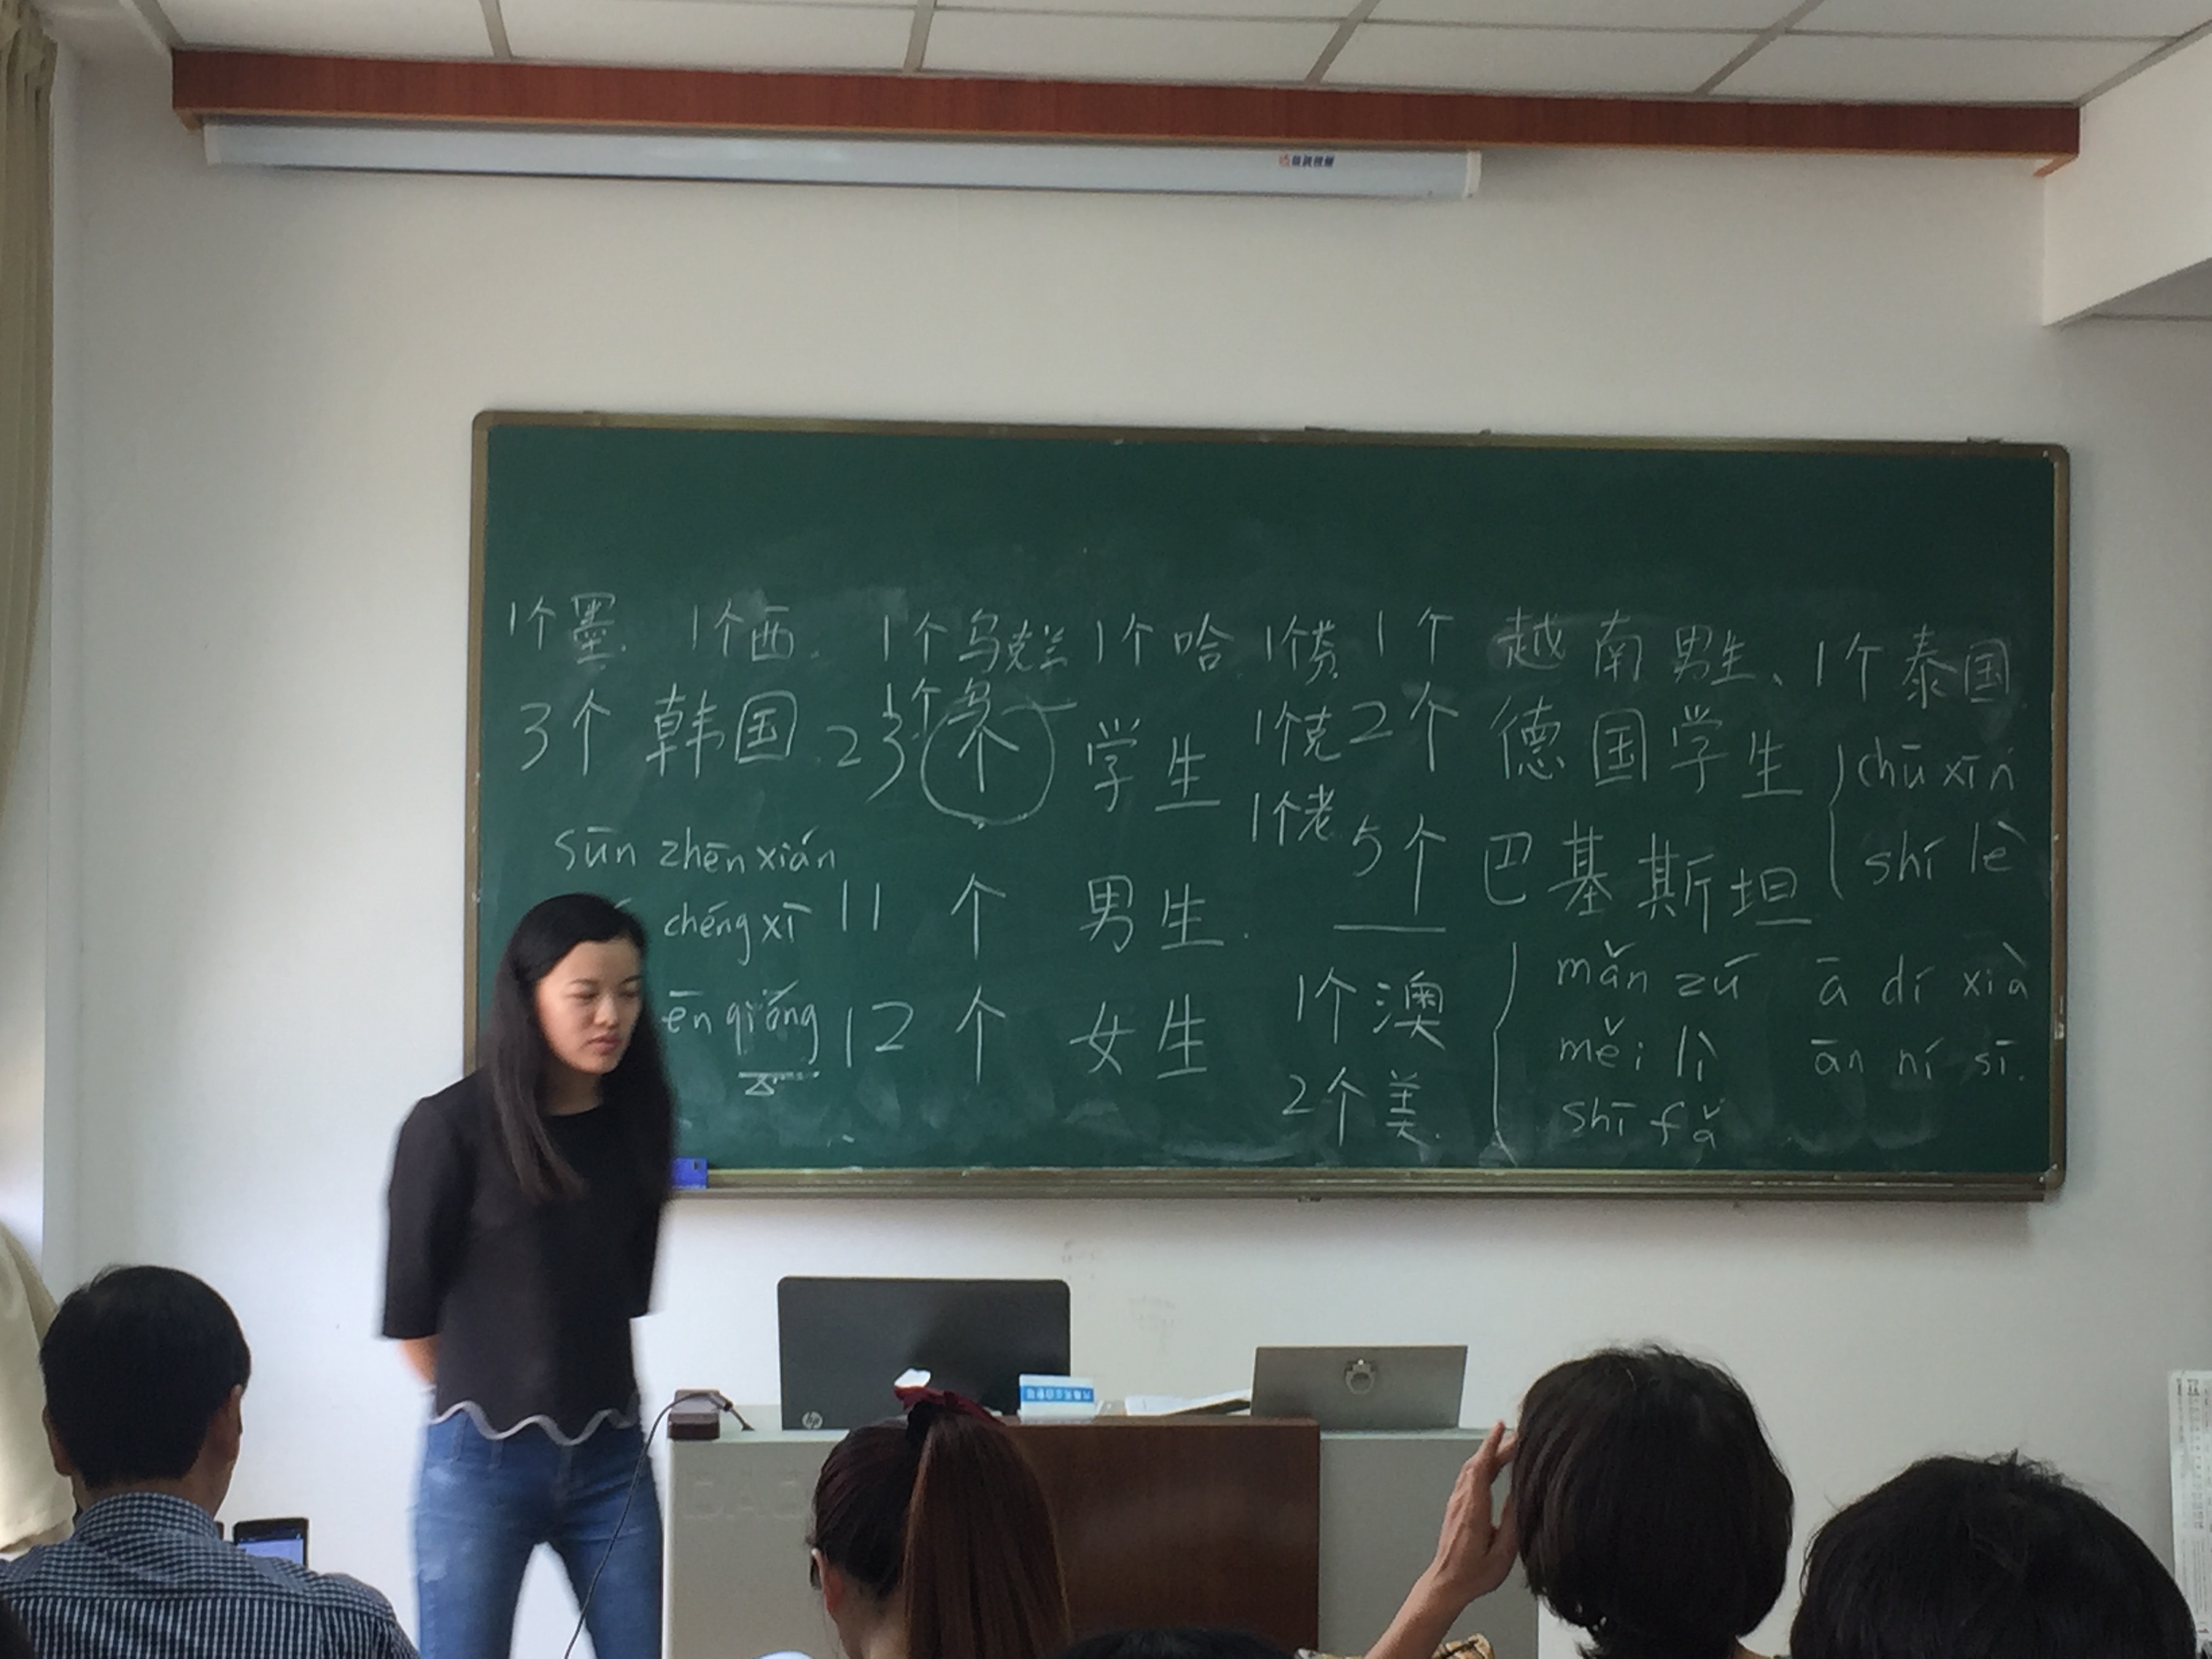 1个墨. 1个西. 1个乌克兰 1个哈 1个芬 1个 越南男生、1个泰国.
3个韩国 23个 学生 1个克 2个 德国学生 chū xīn
1个乌
1个老 5个 巴基斯坦 shí lè
sūn zhēn xián
chéng xī 11 个 男生.
ēn qiáng 12 个 女生
1个澳 mǎn zú ā dí xià
2个美. měi lì ān ní sī.
shī fǎ
hp